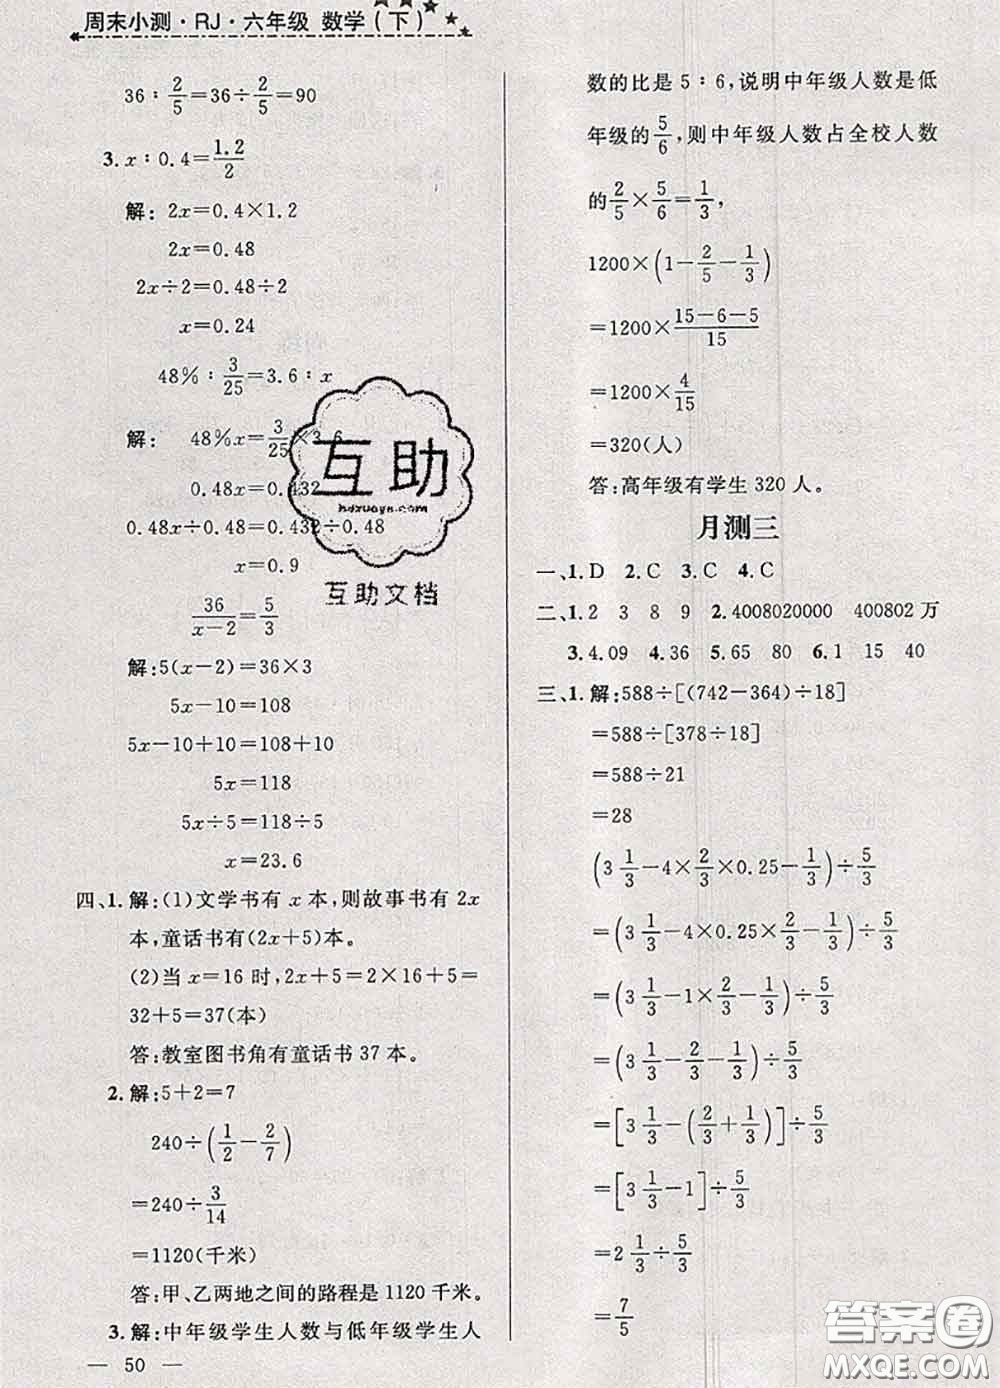 周末小测·RJ·六年级 数学(下)
36∶2/5=36÷2/5=90
3.x∶0.4=1.2/2
解: 2x=0.4×1.2
2x=0.48
2x÷2=0.48÷2
x=0.24
48%∶3/25=3.6∶x
解: 48%x=3/25×3.6
0.48x=0.432
0.48x÷0.48=0.432÷0.48
x=0.9
36/(x-2)=5/3
解:5(x-2)=36×3
5x-10=108
5x-10+10=108+10
5x=118
5x÷5=118÷5
x=23.6
四、1.解:(1)文学书有 x 本,则故事书有 2x
本,童话书有(2x+5)本。
(2)当 x=16 时,2x+5=2×16+5=
32+5=37(本)
答:教室图书角有童话书 37 本。
2.解:5+2=7
240÷(1/2-2/7)
=240÷3/14
=1120(千米)
答:甲、乙两地之间的路程是 1120 千米。
3.解:中年级学生人数与低年级学生人
— 50 —
数的比是 5∶6,说明中年级人数是低
年级的5/6,则中年级人数占全校人数
的2/5×5/6=1/3,
1200×(1-2/5-1/3)
=1200×(15-6-5)/15
=1200×4/15
=320(人)
答:高年级有学生 320 人。
月测三
一、1.D 2.C 3.C 4.C
二、1.2 3 8 9 2.4008020000 400802 万
3.4.09 4.36 5.65 80 6.1 15 40
三、1.解:588÷[(742-364)÷18]
=588÷[378÷18]
=588÷21
=28
(3 1/3-4×2/3×0.25-1/3)÷5/3
=(3 1/3-4×0.25×2/3-1/3)÷5/3
=(3 1/3-1×2/3-1/3)÷5/3
=(3 1/3-2/3-1/3)÷5/3
=[3 1/3-(2/3+1/3)]÷5/3
=[3 1/3-1]÷5/3
=2 1/3÷5/3
=7/5
互助
hdzuoye.com
互助文档
答案圈
MXQE.COM